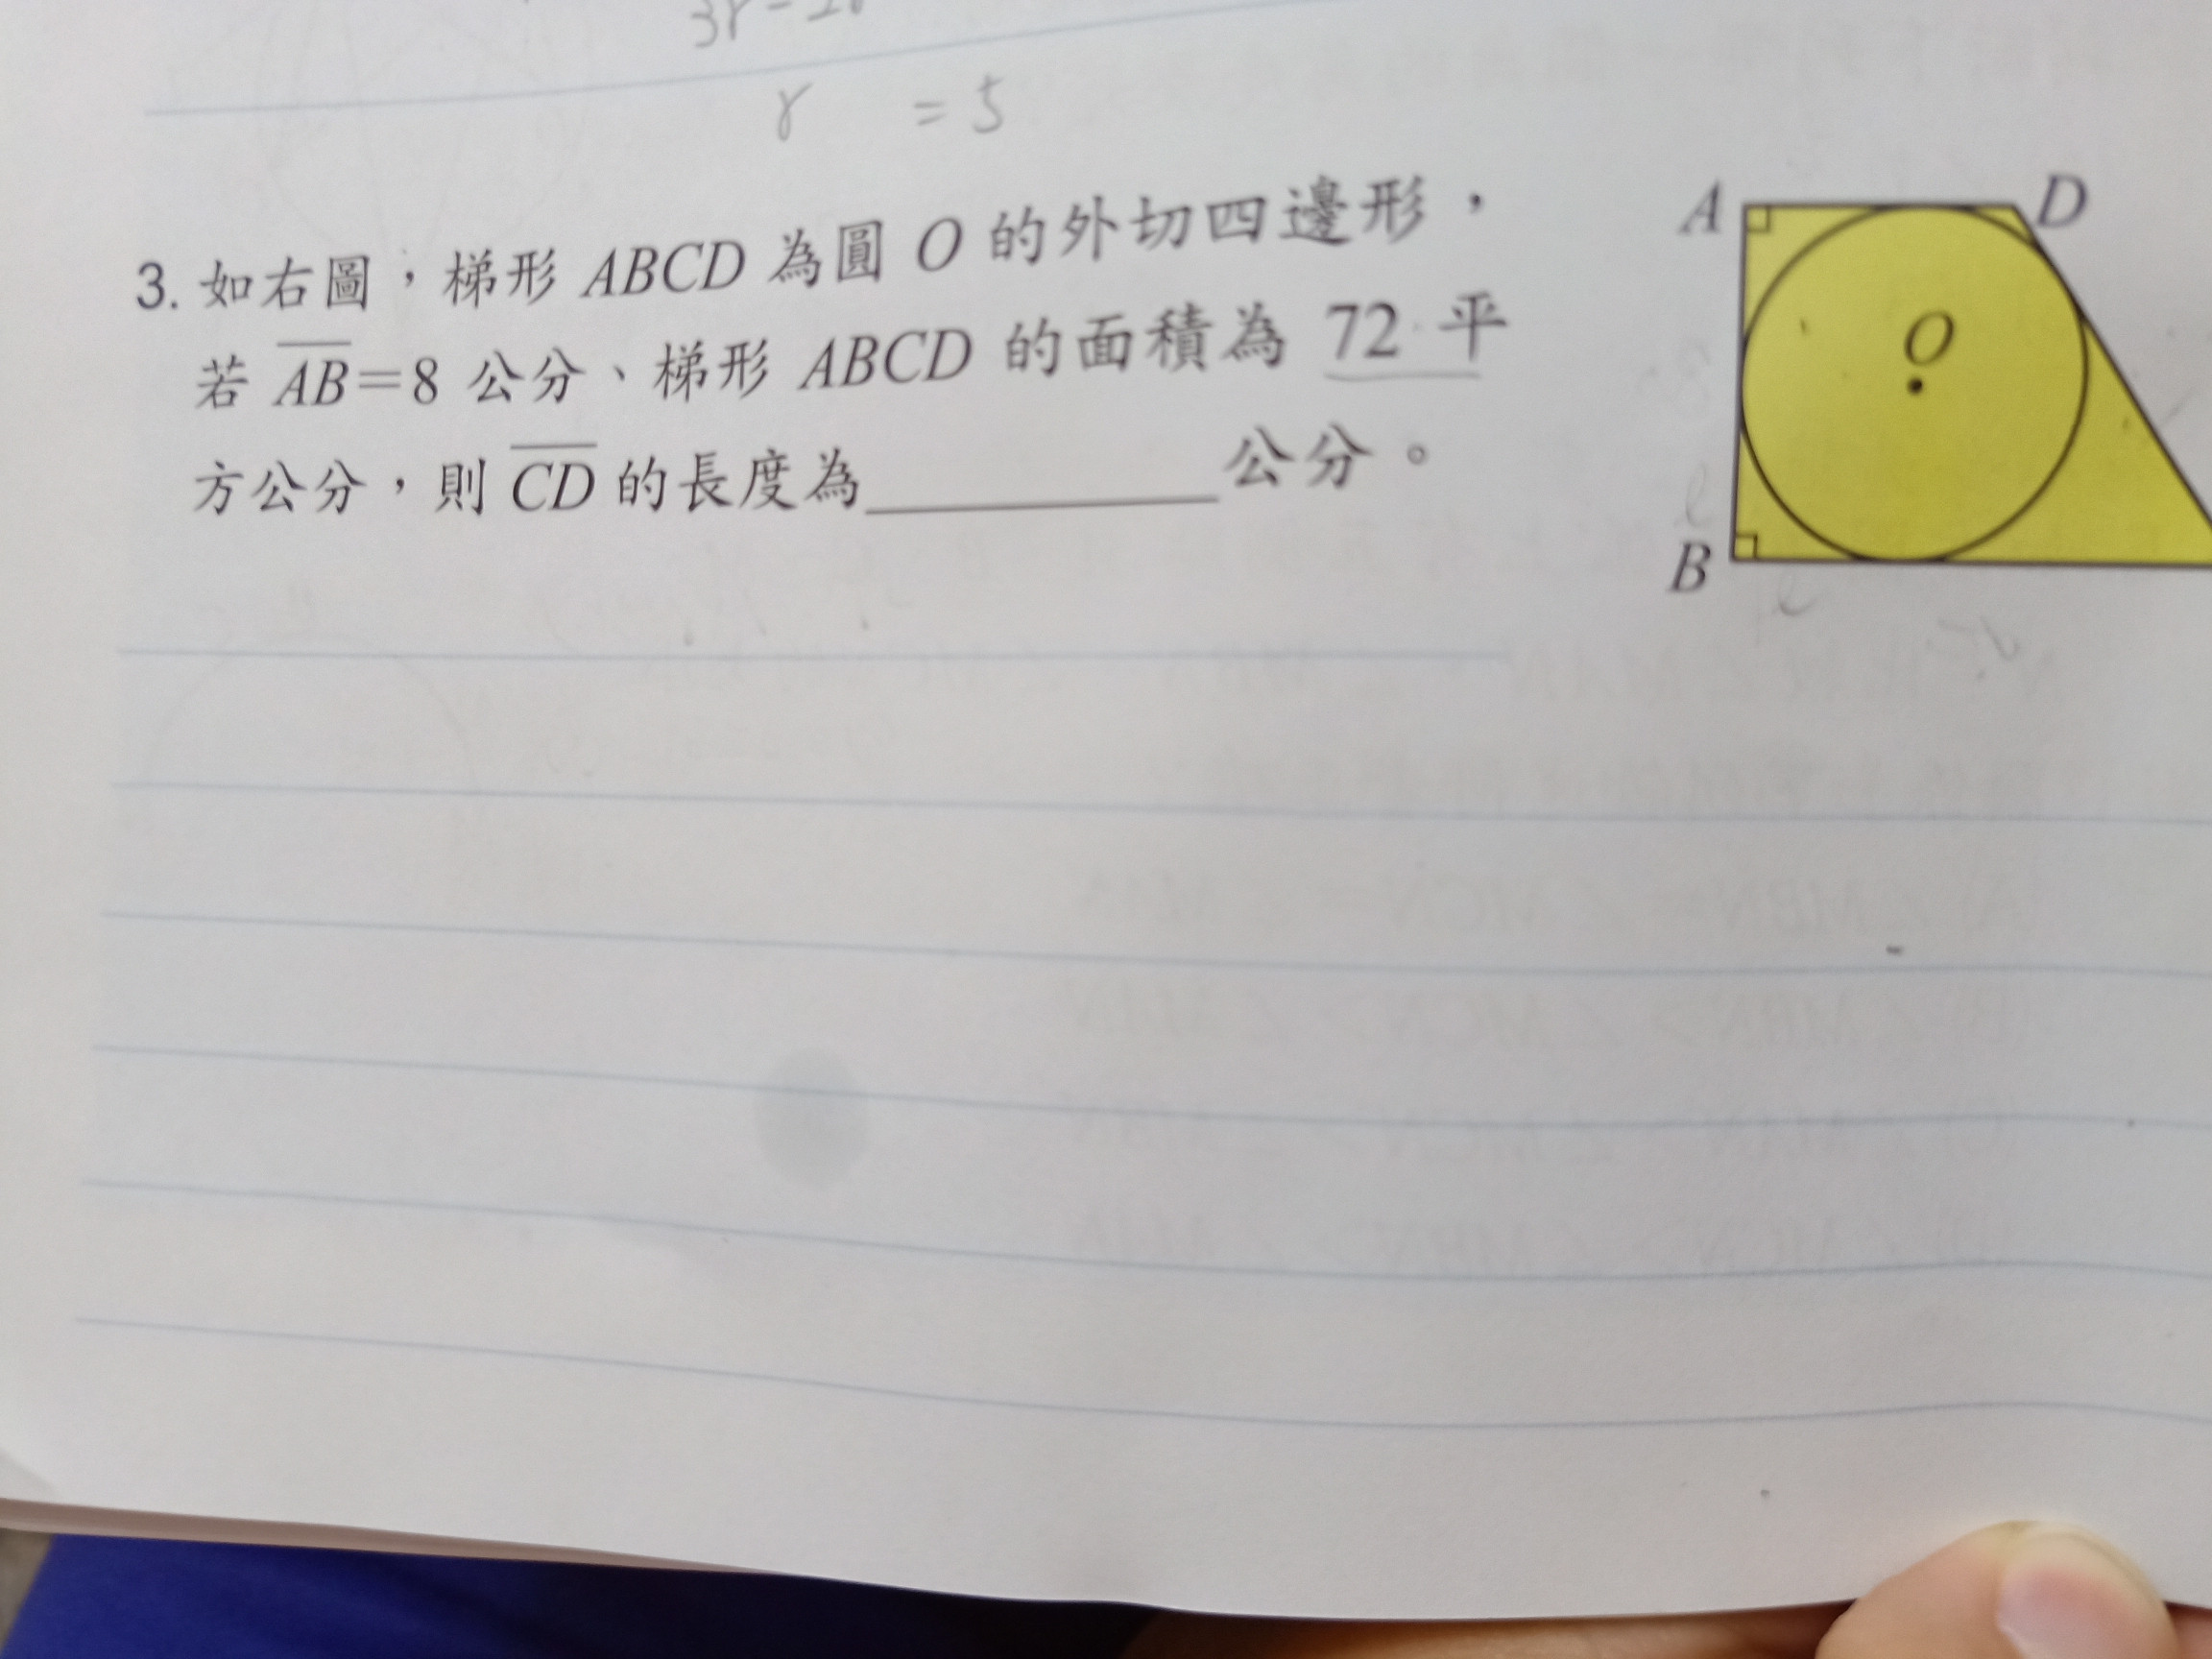 r = 5
3. 如右圖，梯形 ABCD 為圓 O 的外切四邊形，
若 AB=8 公分、梯形 ABCD 的面積為 72 平
方公分，則 CD 的長度為__________公分。
A D
O
B